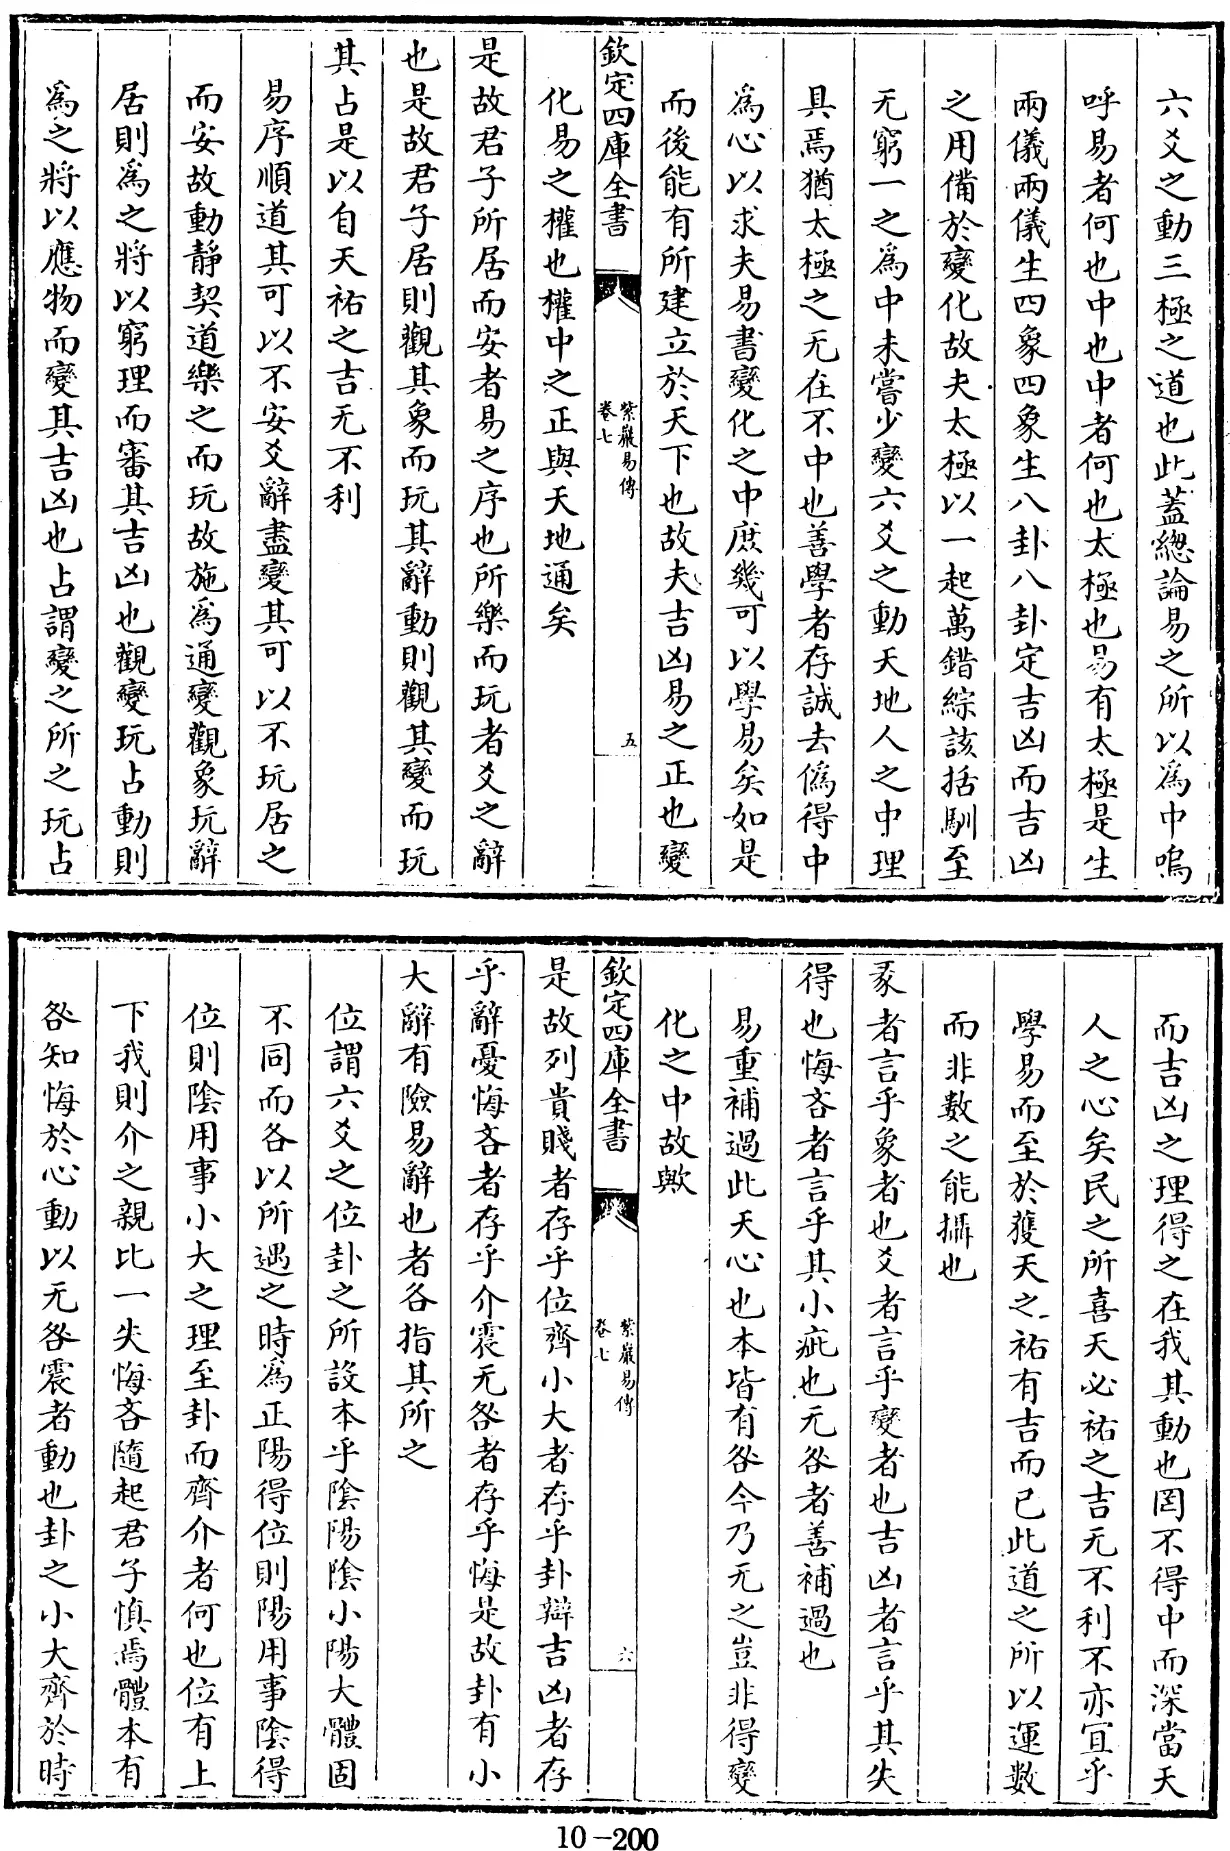 六爻之動三極之道也此蓋總論易之所以為中嗚
呼易者何也中也中者何也太極也易有太極是生
兩儀兩儀生四象四象生八卦八卦定吉凶而吉凶
之用備於變化故夫太極以一起萬錯綜該括馴至
无窮一之為中未嘗少變六爻之動天地人之中理
具焉猶太極之无在不中也善學者存誠去偽得中
為心以求夫易書變化之中庶幾可以學易矣如是
而後能有所建立於天下也故夫吉凶易之正也變
欽定四庫全書
紫巖易傳
卷七
五
化易之權也權中之正與天地通矣
是故君子所居而安者易之序也所樂而玩者爻之辭
也是故君子居則觀其象而玩其辭動則觀其變而玩
其占是以自天祐之吉无不利
易序順道其可以不安爻辭盡變其可以不玩居之
而安故動靜契道樂之而玩故施為通變觀象玩辭
居則為之將以窮理而審其吉凶也觀變玩占動則
為之將以應物而變其吉凶也占謂變之所之玩占
而吉凶之理得之在我其動也罔不得中而深當天
人之心矣民之所喜天必祐之吉无不利不亦宜乎
學易而至於獲天之祐有吉而已此道之所以運數
而非數之能攝也
彖者言乎象者也爻者言乎變者也吉凶者言乎其失
得也悔吝者言乎其小疵也无咎者善補過也
易重補過此天心也本皆有咎今乃无之豈非得變
化之中故歟
欽定四庫全書
紫巖易傳
卷七
六
是故列貴賤者存乎位齊小大者存乎卦辯吉凶者存
乎辭憂悔吝者存乎介震无咎者存乎悔是故卦有小
大辭有險易辭也者各指其所之
位謂六爻之位卦之所設本乎陰陽陰小陽大體固
不同而各以所遇之時為正陽得位則陽用事陰得
位則陰用事小大之理至卦而齊介者何也位有上
下我則介之親比一失悔吝隨起君子慎焉體本有
咎知悔於心動以无咎震者動也卦之小大齊於時
10-200